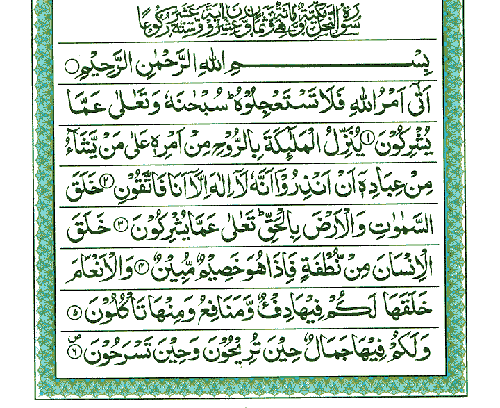 سورة النحل مكية وهي مائة وثمان وعشرون آية وستة عشر ركوعا
بِسْمِ اللهِ الرَّحْمٰنِ الرَّحِيْمِ
اَتٰۤى اَمْرُ اللهِ فَلَا تَسْتَعْجِلُوْهُ ؕ سُبْحٰنَهٗ وَتَعٰلٰى عَمَّا
يُشْرِكُوْنَ ۝۱ يُنَزِّلُ الْمَلٰٓئِكَةَ بِالرُّوْحِ مِنْ اَمْرِهٖ عَلٰى مَنْ يَّشَآءُ
مِنْ عِبَادِهٖۤ اَنْ اَنْذِرُوْۤا اَنَّهٗ لَاۤ اِلٰهَ اِلَّاۤ اَنَا فَاتَّقُوْنِ ۝۲ خَلَقَ
السَّمٰوٰتِ وَالْاَرْضَ بِالْحَقِّ ؕ تَعٰلٰى عَمَّا يُشْرِكُوْنَ ۝۳ خَلَقَ
الْاِنْسَانَ مِنْ نُّطْفَةٍ فَاِذَا هُوَ خَصِيْمٌ مُّبِيْنٌ ۝۴ وَالْاَنْعَامَ
خَلَقَهَا لَكُمْ فِيْهَا دِفْءٌ وَّمَنَافِعُ وَمِنْهَا تَاْكُلُوْنَ ۝۵
وَلَكُمْ فِيْهَا جَمَالٌ حِيْنَ تُرِيْحُوْنَ وَحِيْنَ تَسْرَحُوْنَ ۝۶